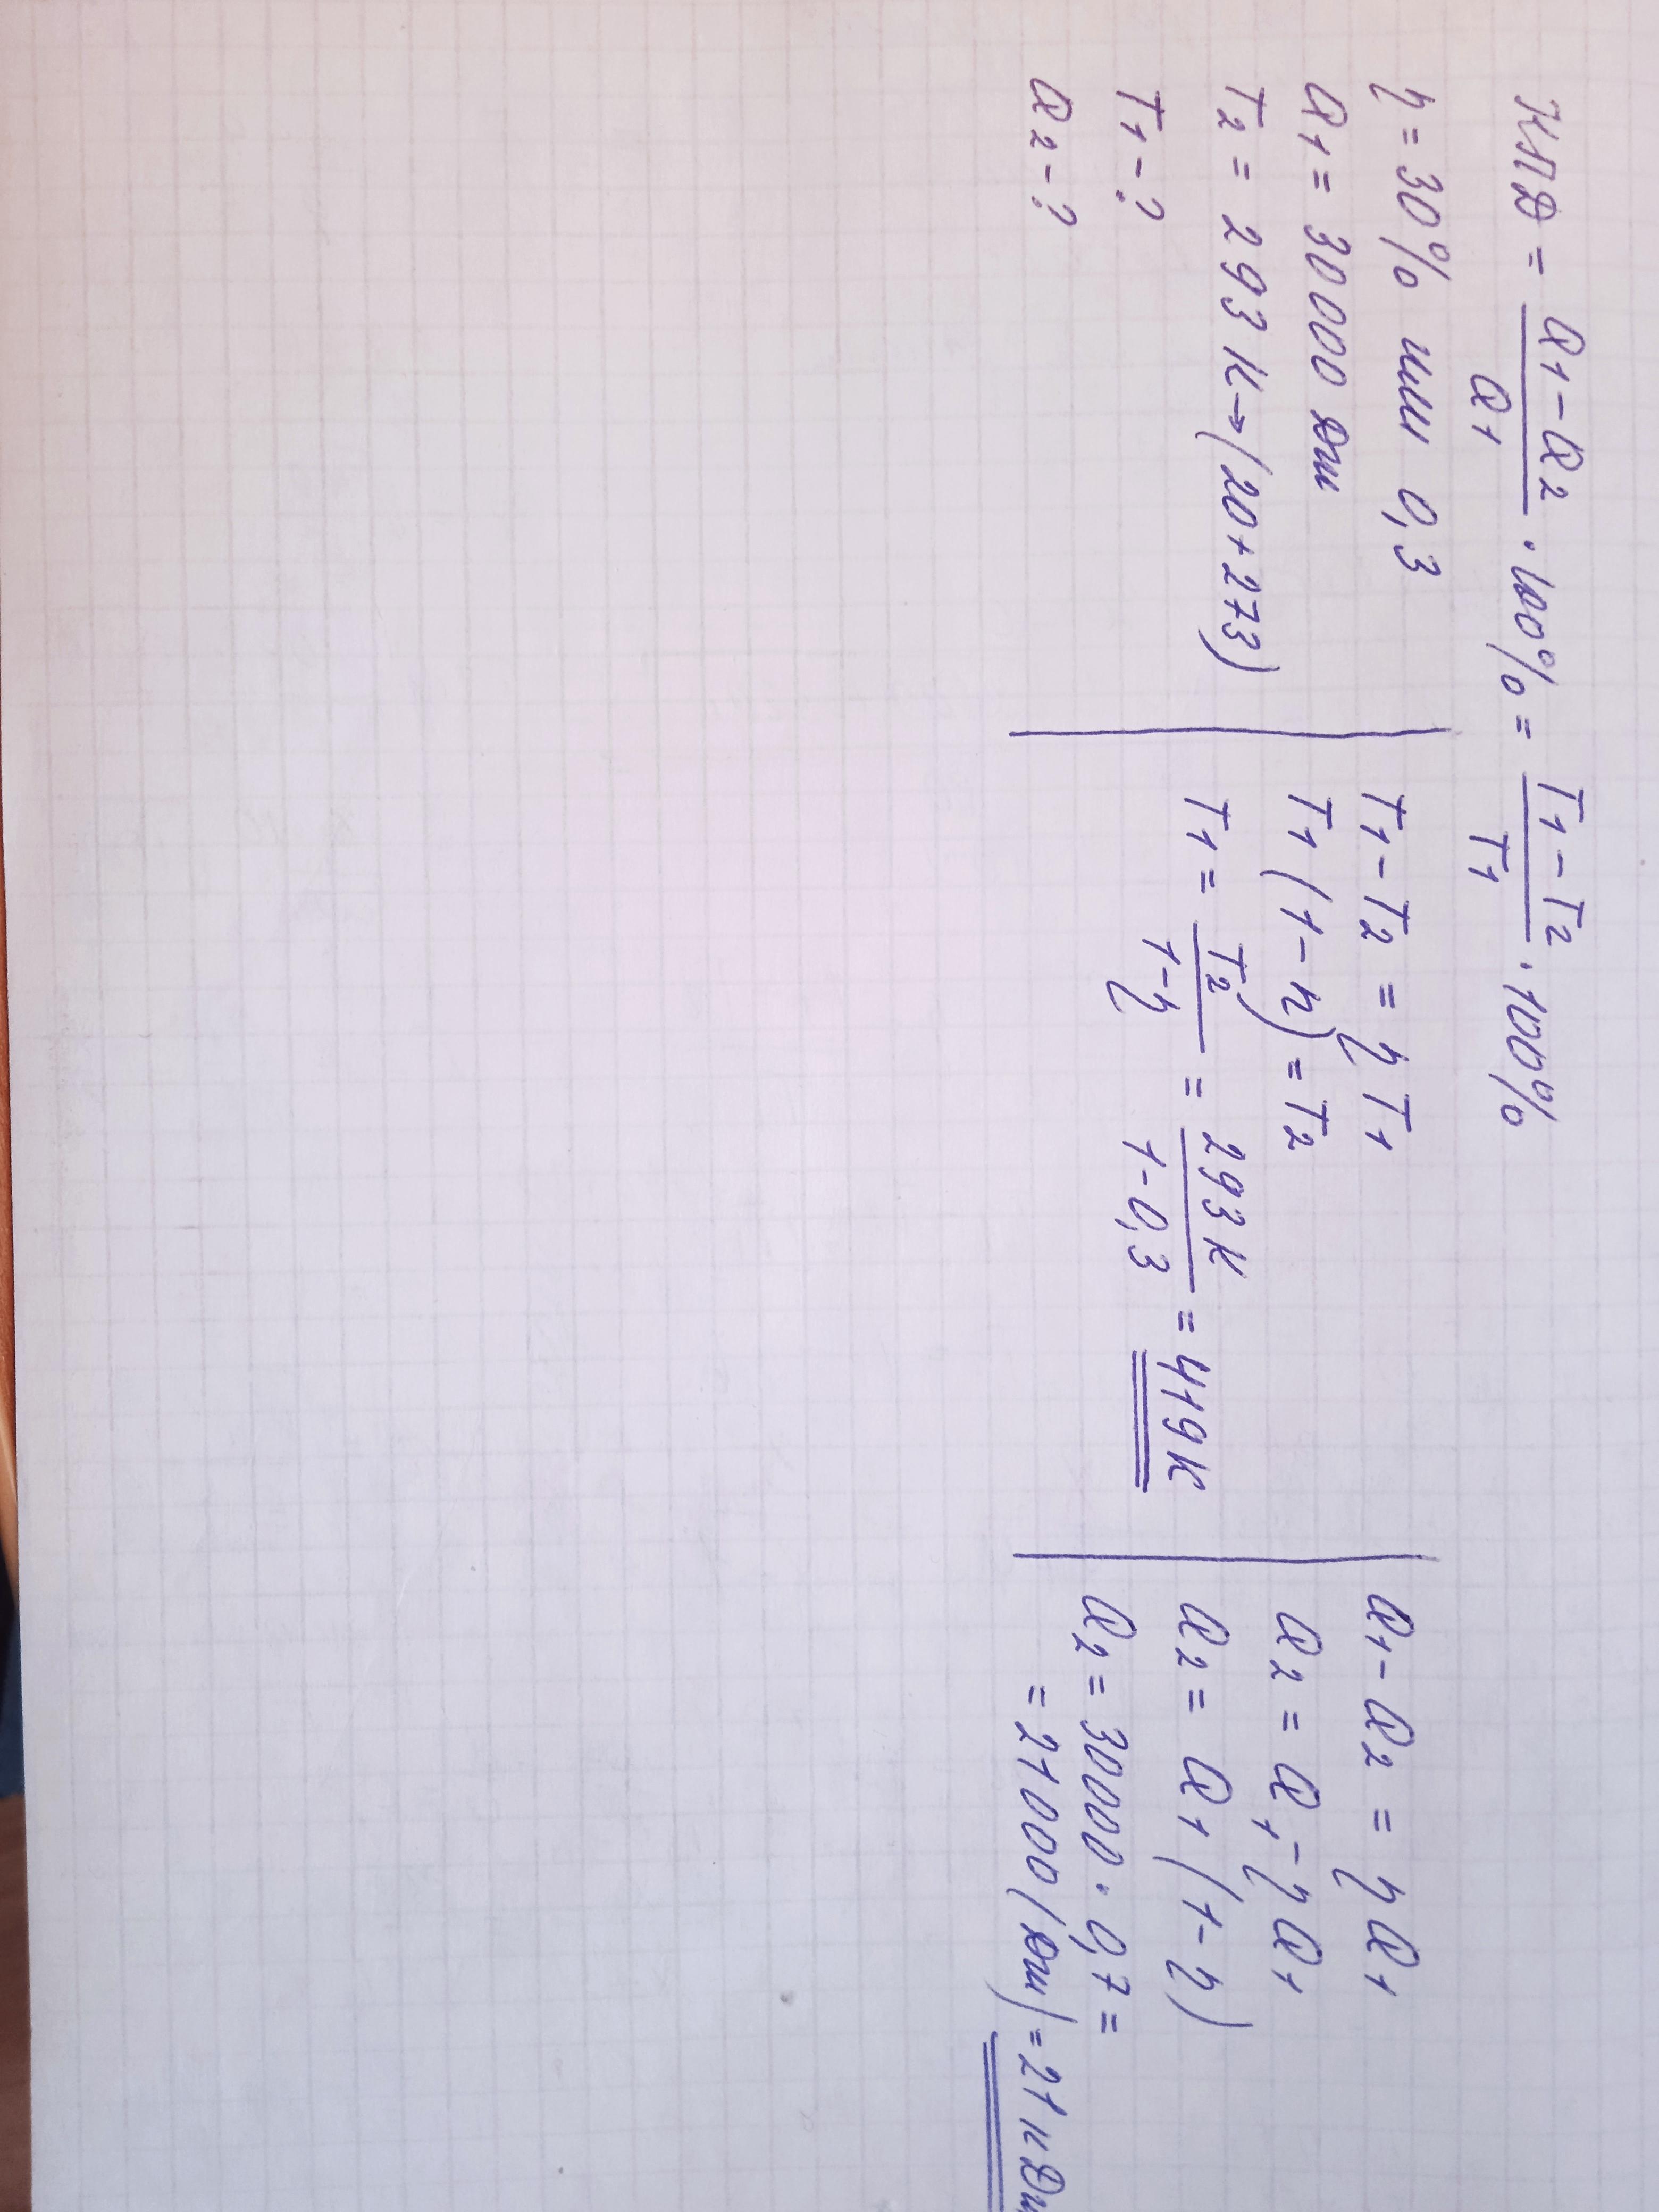 КПД = (Q1 − Q2)/Q1 · 100% = (T1 − T2)/T1 · 100%
η = 30% или 0,3
Q1 = 30000 Дж
T2 = 293 К → (20 + 273)
T1 − ?
Q2 − ?
T1 − T2 = η T1
T1 (1 − η) = T2
T1 = T2/(1 − η) = 293 К/(1 − 0,3) = 419 К
Q1 − Q2 = η Q1
Q2 = Q1 − η Q1
Q2 = Q1 (1 − η)
Q2 = 30000 · 0,7 =
= 21000 (Дж) = 21 кДж